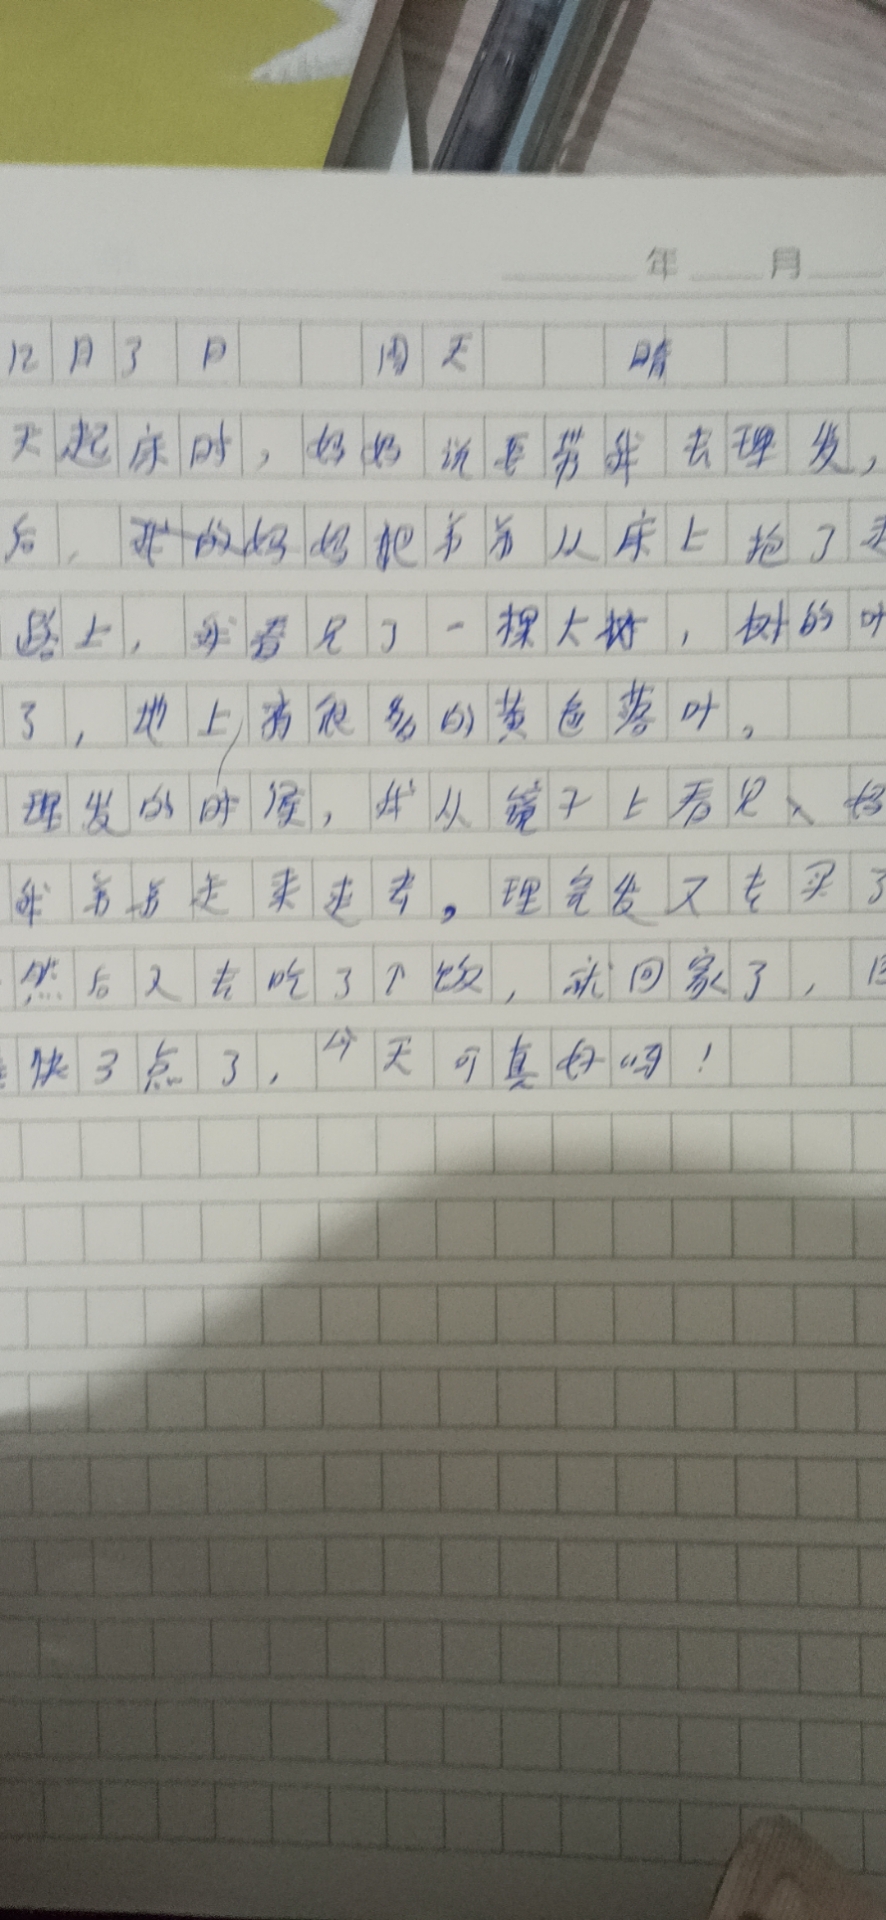 年 月
12月3日 周天 晴
天起床时，妈妈说要带我去理发，
后，我的妈妈把弟弟从床上抱了
路上，我看见了一棵大树，树的叶
了，地上有很多的黄色落叶。
理发的时候，我从镜子上看见、妈
我弟弟走来走去。理完发又去买了
然后又去吃了个饭，就回家了，
快3点了，今天可真好吗！